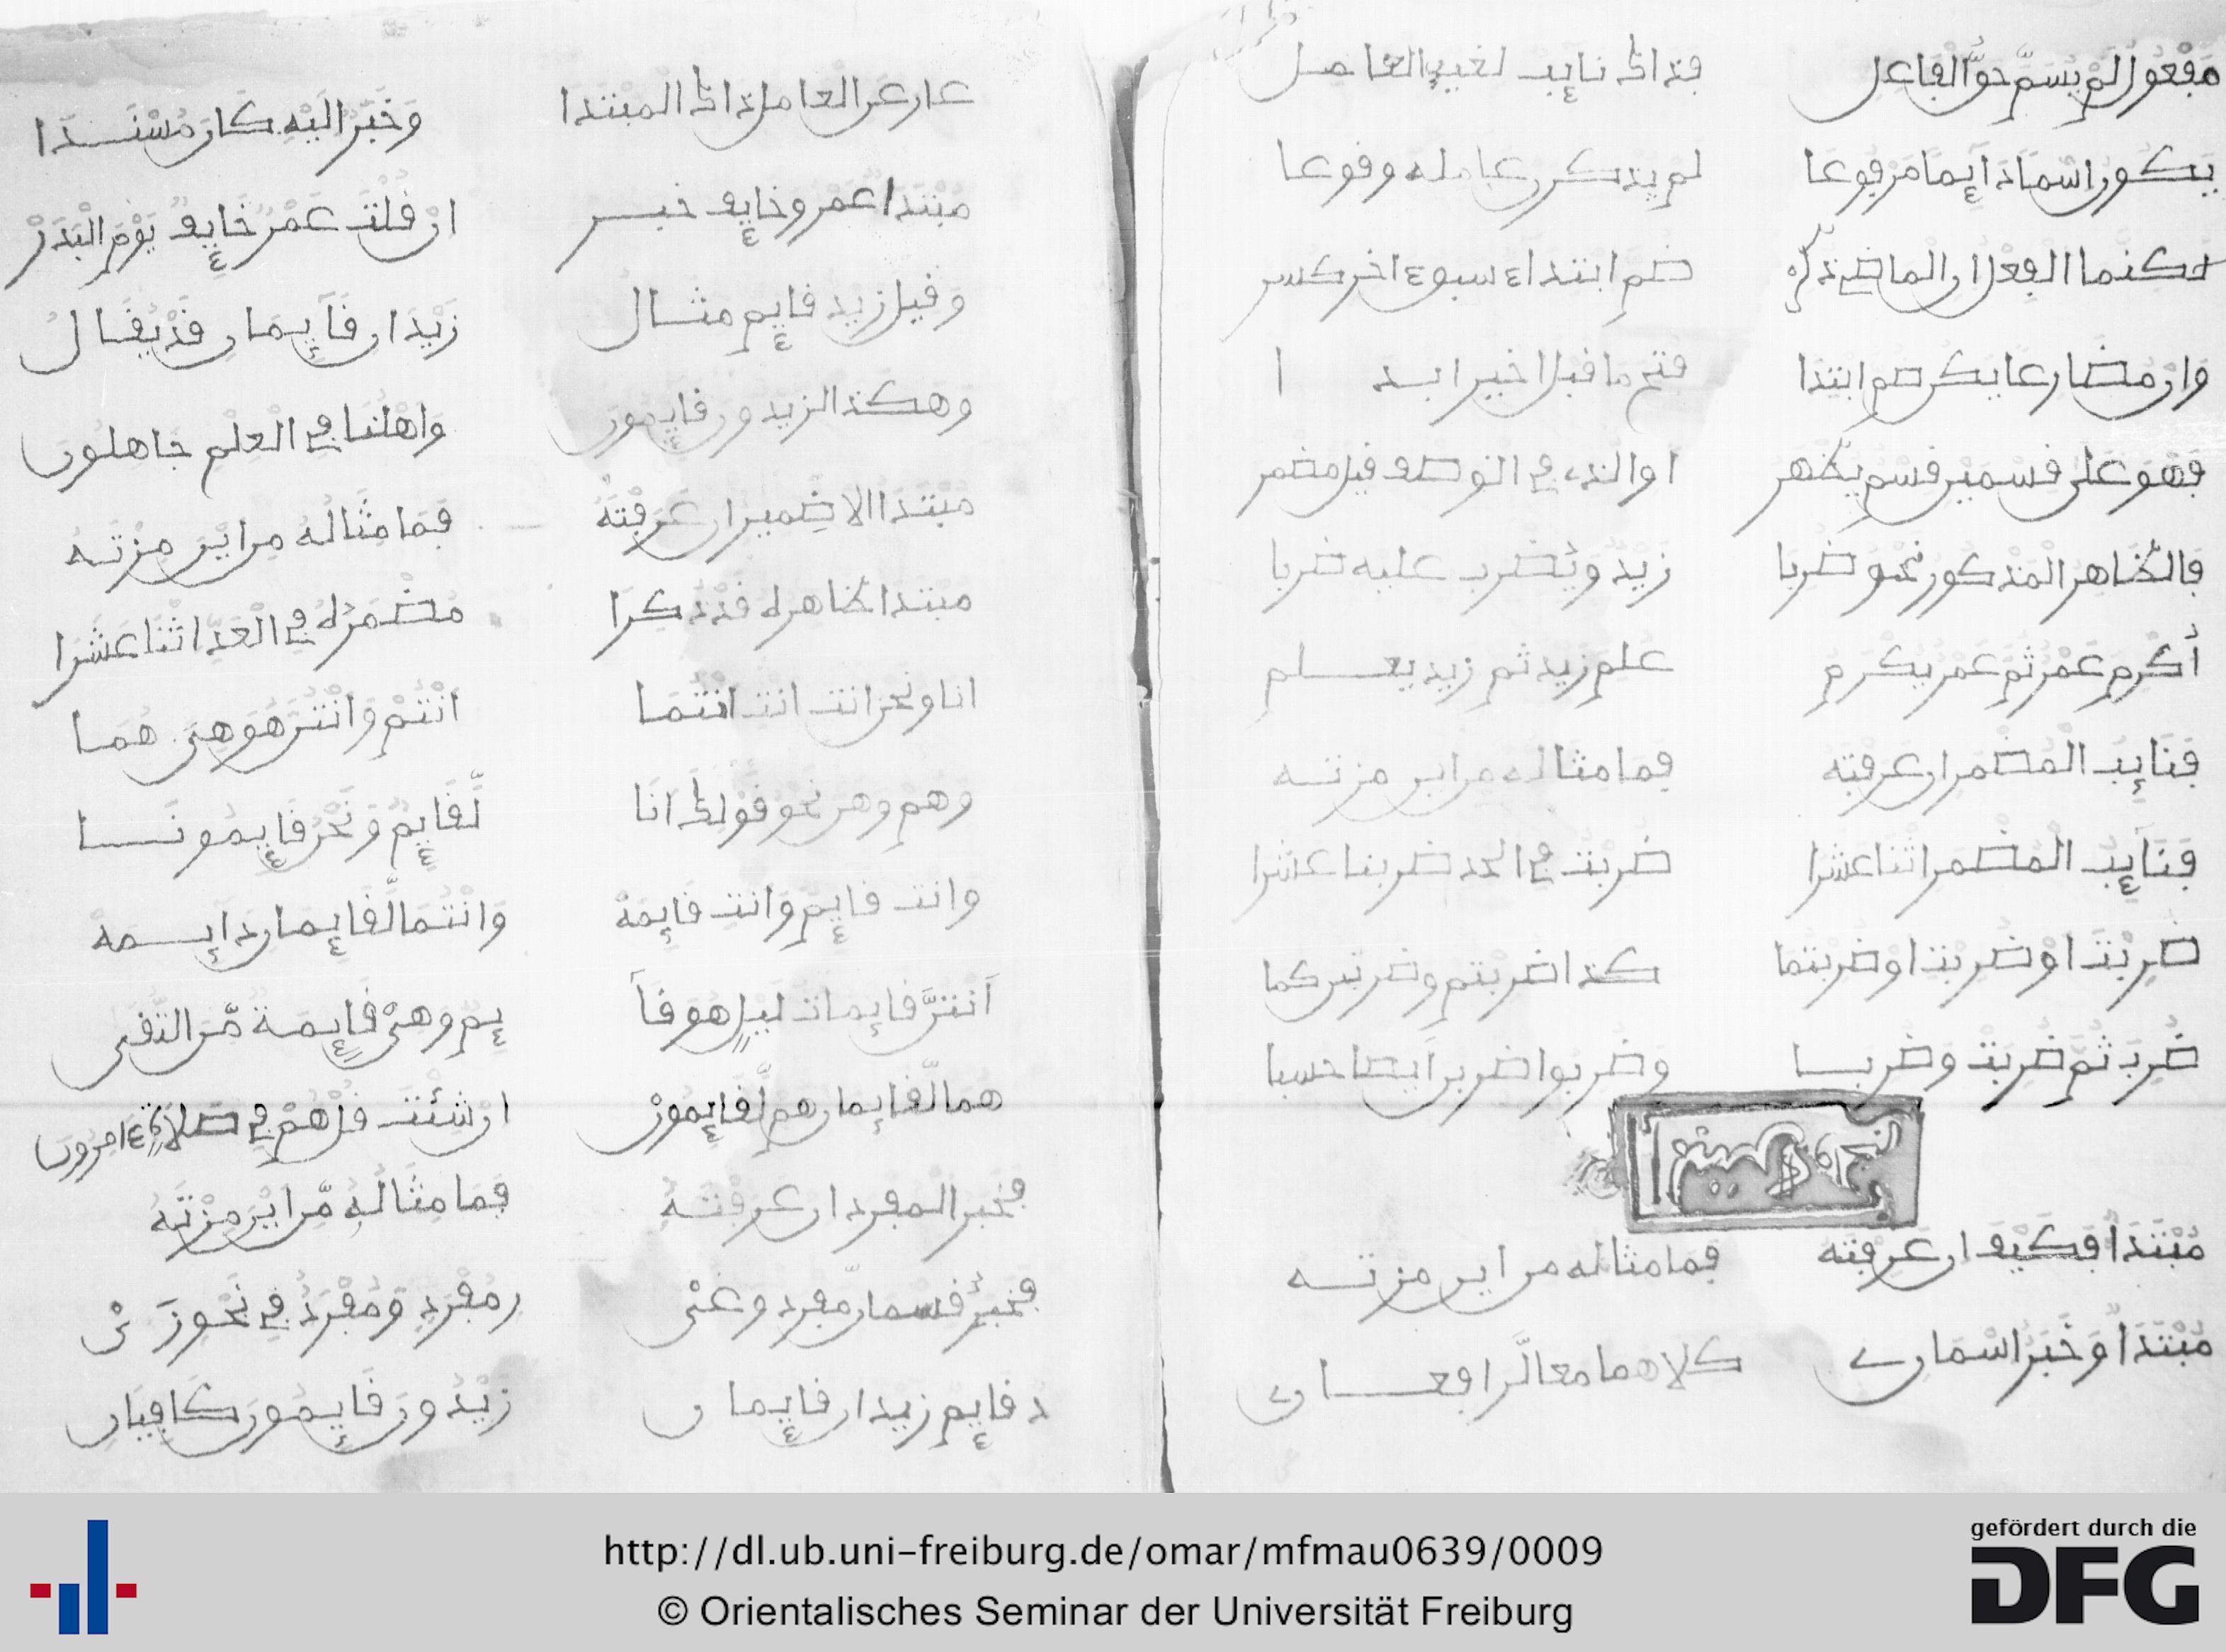 مفعول لم يسم حق الفاعل فذاك نايب لغير
يكون اسما دايما مرفوعا لم يذكرن عامله وقوعا
لكنما الفعل ان الماض ذكر ضم ابتداء ءاخر كسر
وان مضارعا يكن ضم ابتدا فتح ما قبل اخير ابدا
فهو على قسمين قسم يظهر او الذي في الوصف قيل مضمر
فالظاهر المذكور نحو ضربا زيد ويضرب عليه ضربا
أكرم عمر ثم عمر يكرم علم زيد ثم زيد يعلم
فنايب المضمر ان عرفته فما مثاله من اين مزته
فنايب المضمر اثنا عشرا ضربت في العد ضربنا عشرا
ضربت او ضربت او ضربتما كذا ضربتم وضربتن كما
ضرب ثم ضربت وضربا وضربوا ضربن ايضا حسبا
مبتدأ فكيف ان عرفته فما مثاله من اين مزته
مبتدأ وخبر اسمان كلاهما معا لرافعان
عار عن العامل ذاك المبتدا وخبر اليه كان مسندا
مبتدا عمر وخايف خبر ان قلت عمر خايف يوم البدر
وقيل زيد قايم مثال زيدان قايمان قد يقال
وهكذا الزيدون قايمون واهلنا في العلم جاهلون
مبتدا الا ضمير ان عرفته فما مثاله من اين مزته
مبتدا ظاهر له قد ذكرا مضمر له في العد اثنا عشرا
انا ونحن انت انت انتما انتم وانتن هو هي هما
وهم وهن نحو قولك انا لقايم ونحن قايمونا
وانت قايم وانت قايمة وانتما لقايمان دايمه
انتن قايمات ليل هو قا يم وهي قايمة من التقى
هما لقايمان هم لقايمون ان شئت قل هم في صلاة ءامرون
فخبر المفرد ان عرفته فما مثاله من اين مزته
فخبر قسمان مفرد وغي ر مفرد ومفرد في نحو زي
د قايم زيدان قايمان زيدون قايمون كافيان
http://dl.ub.uni-freiburg.de/omar/mfmau0639/0009
© Orientalisches Seminar der Universität Freiburg
gefördert durch die
DFG